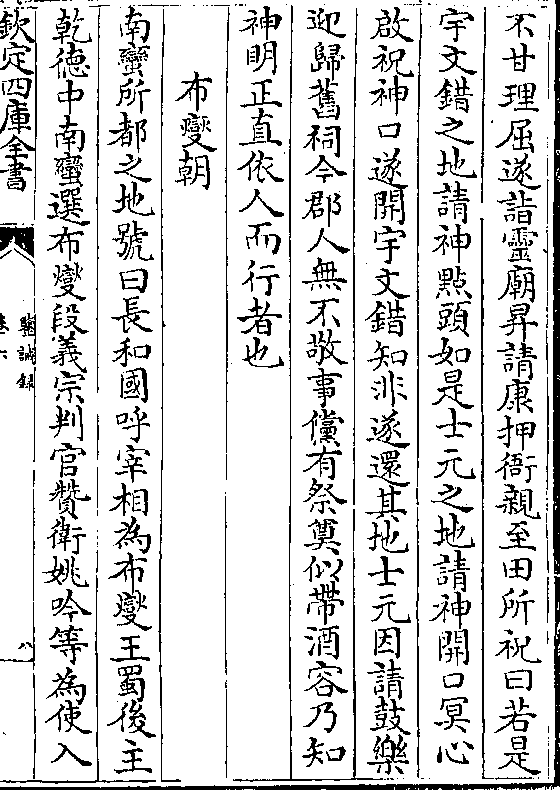 不甘理屈遂詣靈廟昇請康押衙親至田所祝曰若是
宇文錯之地請神㸃頭如是士元之地請神開口冥心
啟祝神口遂開宇文錯知非遂還其地士元因請鼓樂
迎歸舊祠今郡人無不敬事儻有祭奠似帶酒容乃知
神明正直依人而行者也
布燮朝
南蠻所都之地號曰長和國呼宰相為布燮王蜀後主
乾德中南蠻選布燮段義宗判官贊衛姚岑等為使入
欽定四庫全書
鑒誡錄
卷六
八